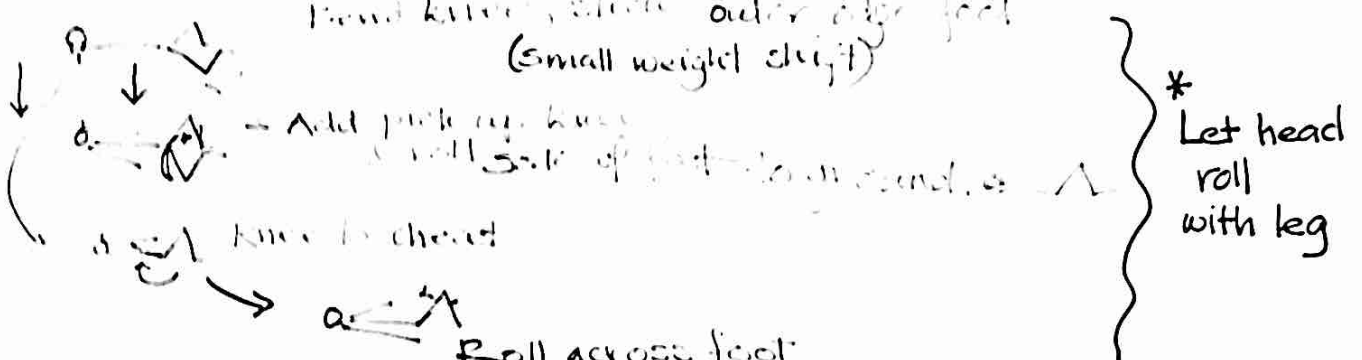 Bend knee, outer edge foot
(small weight shift)
- Add pick up knee
roll side of foot down
Knee to chest
Roll across foot
*
Let head
roll
with leg